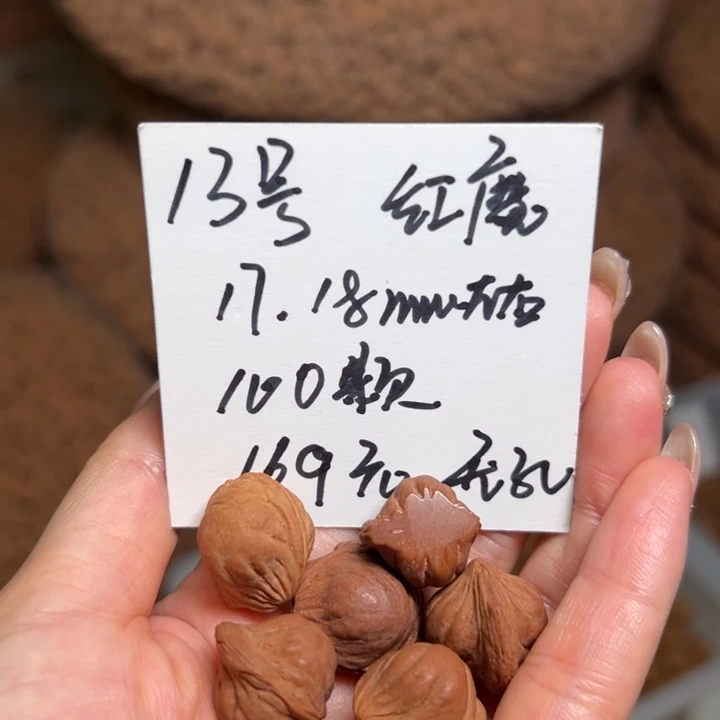 13号 红魔
17.18mm左右
100颗
169元 无孔